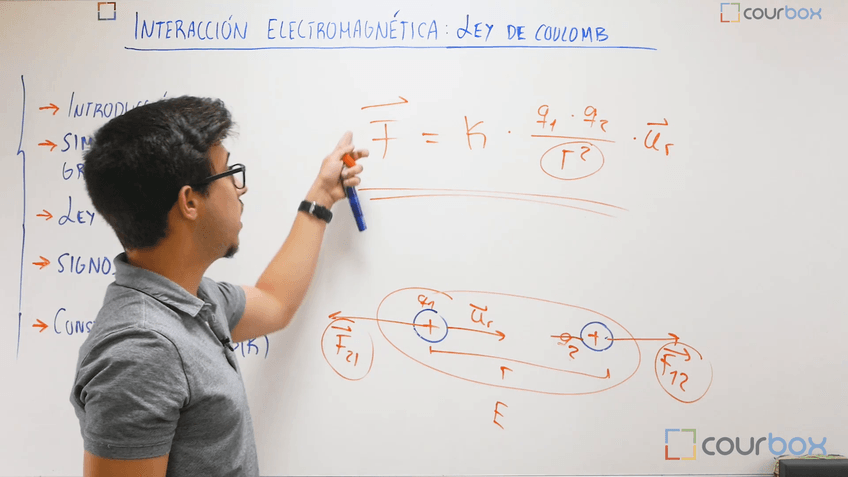 courbox
INTERACCIÓN ELECTROMAGNÉTICA: LEY DE COULOMB
→ INTRODUCCIÓ
→ SIM
GR
→ LEY
→ SIGNO
→ CONS
(K)
F = K · q1 · q2 / r² · ur
q1 ur q2
F21 r F12
E
courbox